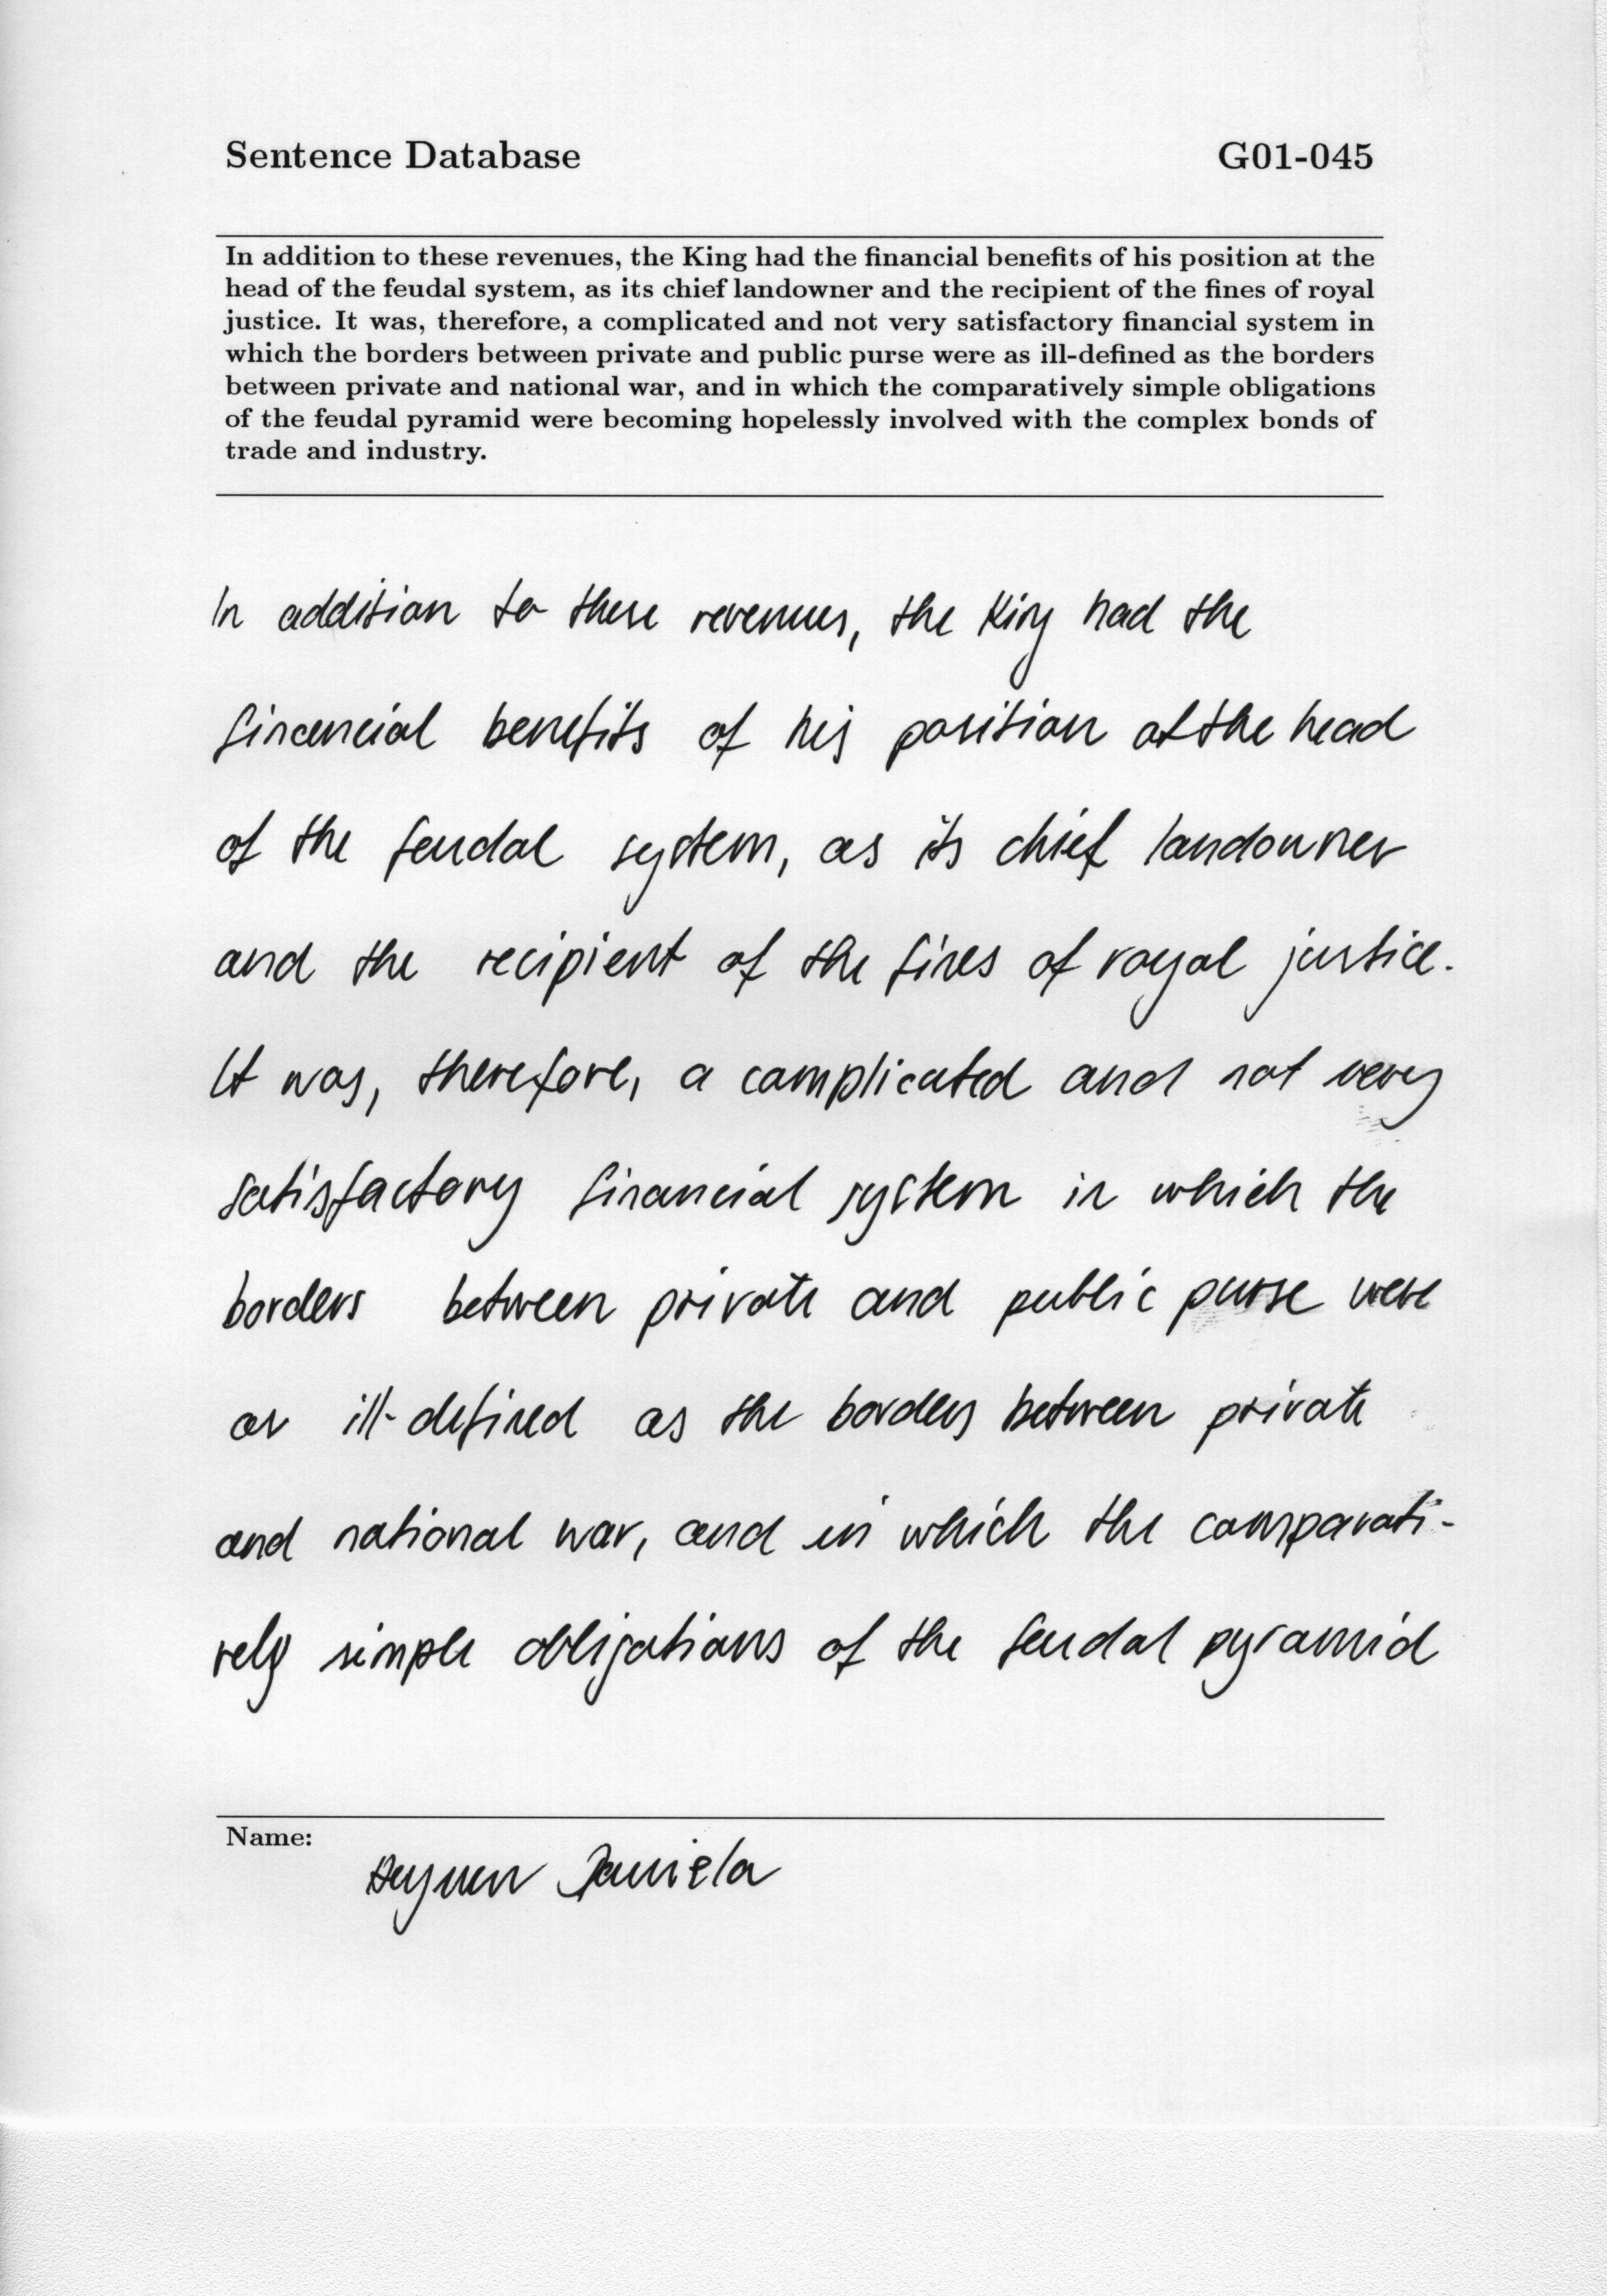 Sentence Database G01-045
In addition to these revenues, the King had the financial benefits of his position at the
head of the feudal system, as its chief landowner and the recipient of the fines of royal
justice. It was, therefore, a complicated and not very satisfactory financial system in
which the borders between private and public purse were as ill-defined as the borders
between private and national war, and in which the comparatively simple obligations
of the feudal pyramid were becoming hopelessly involved with the complex bonds of
trade and industry.
In addition to these revenues, the King had the
financial benefits of his position at the head
of the feudal system, as its chief landowner
and the recipient of the fines of royal justice.
It was, therefore, a complicated and not very
satisfactory financial system in which the
borders between private and public purse were
as ill-defined as the borders between private
and national war, and in which the comparati-
vely simple obligations of the feudal pyramid
Name:
Daniela